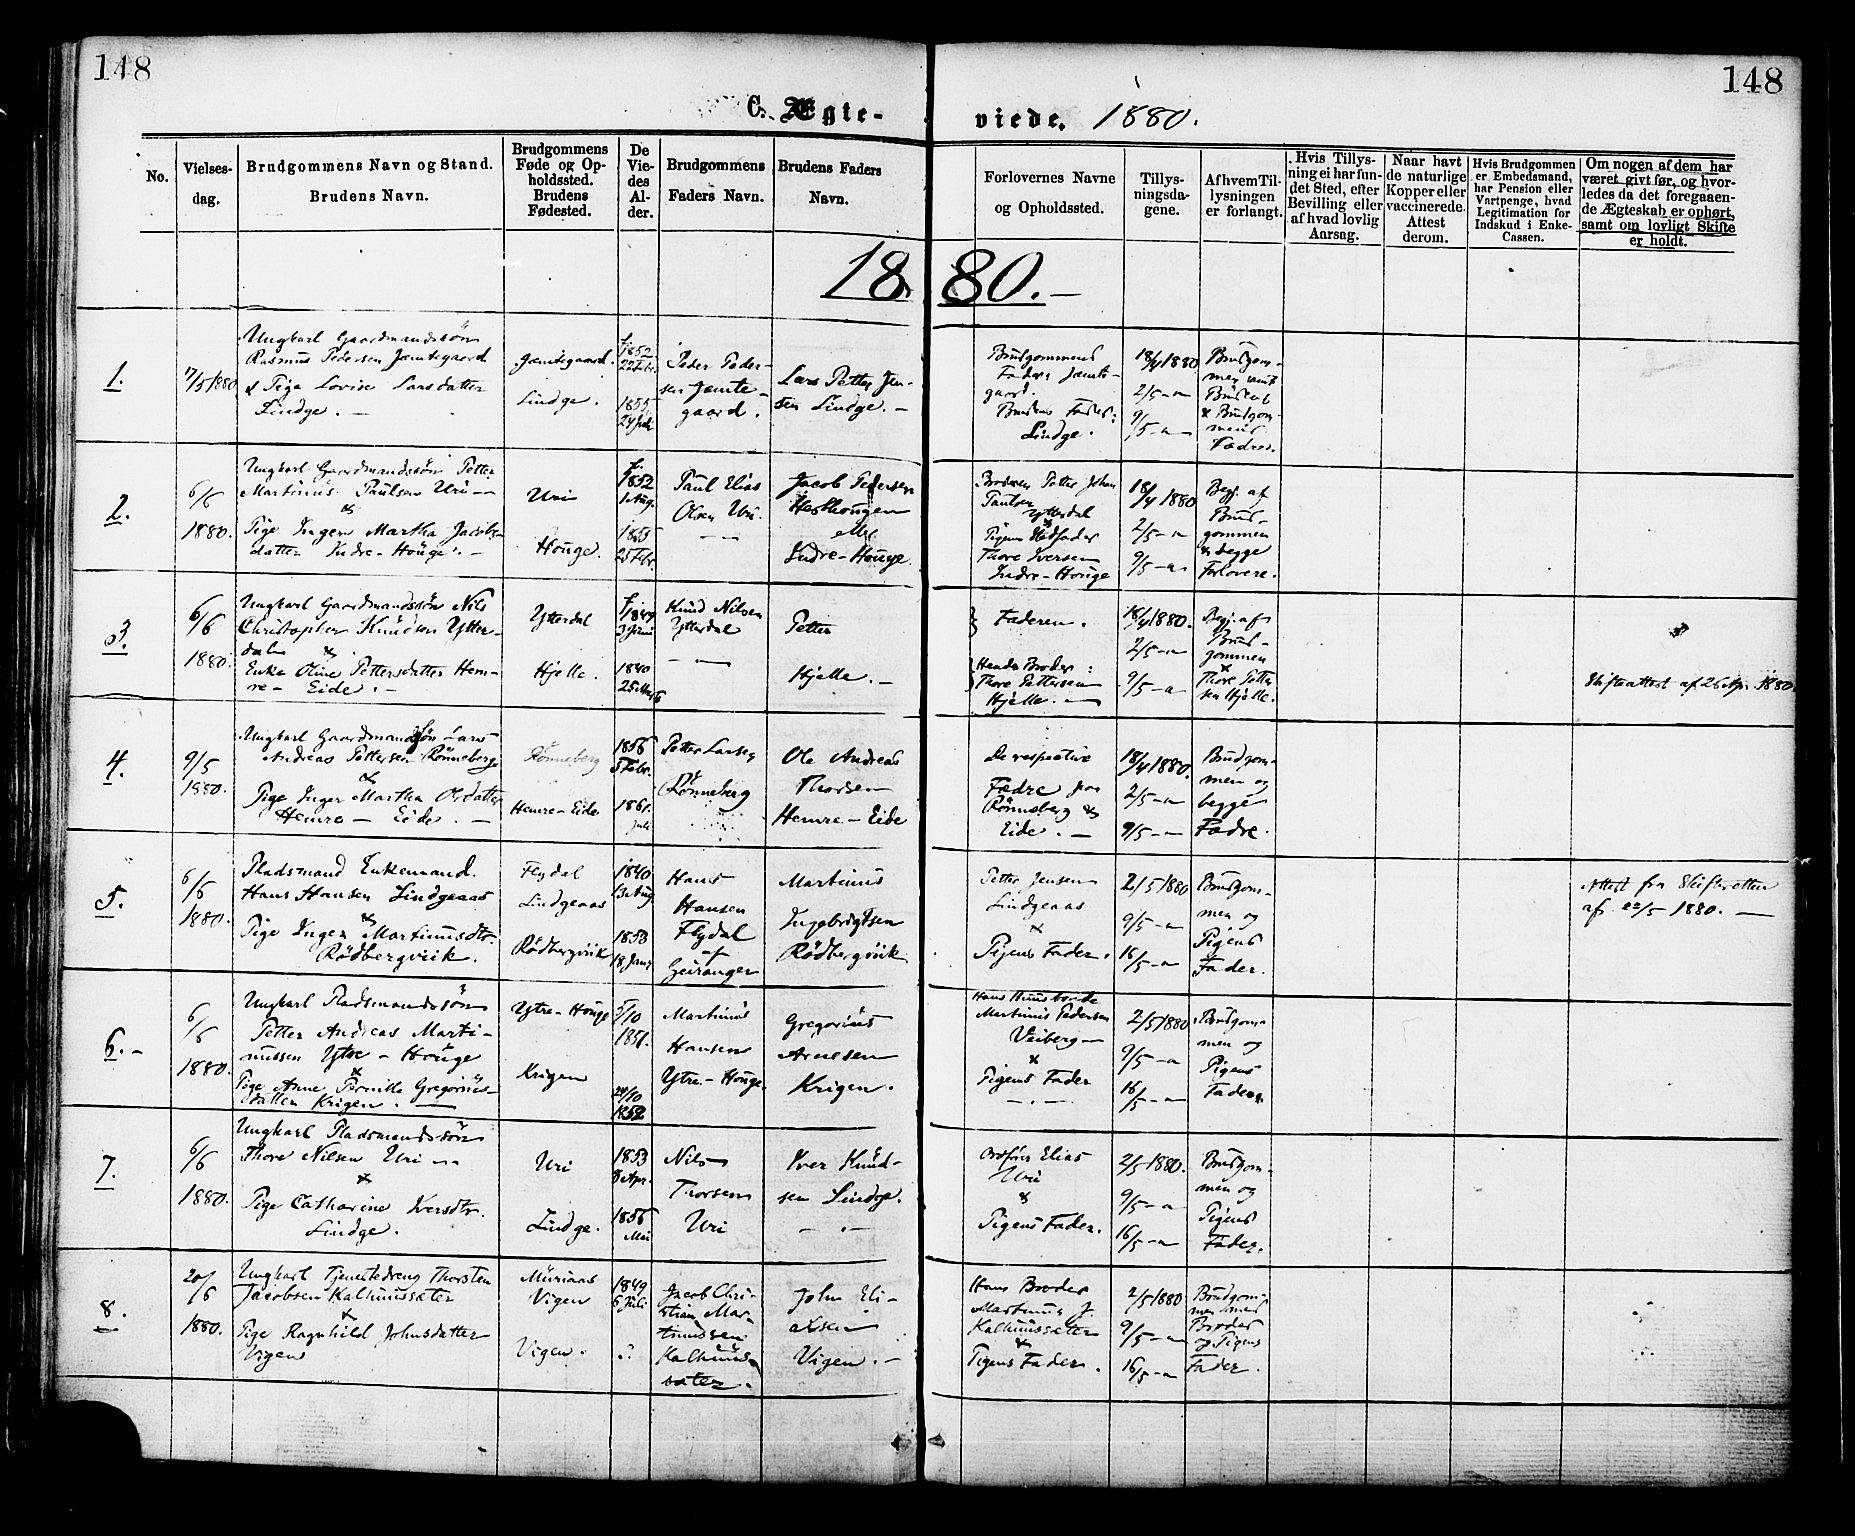 148
148
C. Ægte-
viede. 1880.
No.
Vielses-
dag.
Brudgommens Navn og Stand.
Brudens Navn.
Brudgommens
Føde og Op-
holdssted.
Brudens
Fødested.
De
Vie-
des
Al-
der.
Brudgommens
Faders Navn.
Brudens Faders
Navn.
Forlovernes Navne
og Opholdssted.
Tillys-
ningsda-
gene.
Af hvem Til-
lysningen
er forlangt.
Hvis Tillys-
ning ei har fun-
det Sted, efter
Bevilling eller
af hvad lovlig
Aarsag.
Naar havt
de naturlige
Kopper eller
vaccinerede.
Attest
derom.
Hvis Brudgommen
er Embedsmand,
har Pension eller
Vartpenge, hvad
Legitimation for
Indskud i Enke-
Cassen.
Om nogen af dem har
været givt før, og hvor-
ledes da det foregaaen-
de Ægteskab er ophørt,
samt om lovligt Skifte
er holdt.
1880.-
1.
17/5 1880
Ungkarl Gaardmandssøn
Rasmus Pedersen Jæmtegaard
& Pige Lovise Larsdatter
Lindge. -
Jæmtegaard.
Lindge.
1852
22 Febr.
1855
24 Juli
Peder Peder-
sen Jæmte-
gaard.
Lars Petter Jen-
sen Lindge. -
Brudgommens
Fader: Jæmte-
gaard.
Brudens Fader:
Lindge.
18/4 1880
2/5 - "
9/5 - "
Brudgom-
men samt
& Brudgom-
mens
Fadres.
2.
6/6
1880.
Ungkarl Gaardmandssøn Petter
Martinus Paulsen Uri -
&
Pige Inger Martha Jacobs-
datter Indre-Houge. -
Uri
Houge.
1852
1 Aug.
1853
25 Febr.
Paul Elias
Olsen Uri.
Jacob Pedersen
Hesthougen
eller
Indre-Houge.
Broderen Petter Johan
Paulsen
Ytterdal
&
Pigens Stedfader
Thore Iversen
Indre-Houge
18/4 1880
2/5 - "
9/5 - "
Begj. af
Brud-
gommen
& begge
Forlovere.
3.
6/6
1880.
Ungkarl Gaardmandssøn Nils
Christopher Knudsen Ytter-
dal &
Enke Oline Pettersdatter Hem-
re - Eide. -
Ytterdal
Hjelle.
1849
3 Juni
1840
Knud Nilsen
Ytterdal
Petter
Hjelle. -
Faderen.
Hendes Broder:
Thore Pettersen
Hjelle. -
18/4 1880.
2/5 - "
9/5 - "
Begj. af
Brud-
gommen
&
Thore Petter
sen Hjelle.
Skifteattest af 26 Apr. 1880.
4.
9/5
1880.
Ungkarl Gaardmandssøn Lars
Andreas Pettersen Rönneberg
&
Pige Inger Martha Olsdatter
Hemre - Eide. -
Rönneberg
Hemre-Eide
1856
5 Febr.
1861.
Juli
Petter Larsen
Rönneberg
Ole Andreas
Thorsen
Hemre-Eide
De respective
Fædre paa
Rönneberg &
Eide. -
18/4 1880.
2/5 - "
9/5 - "
Brudgom-
men og
begge
Fædre.
5.
6/6
1880.
Pladsmand Enkemand.
Hans Hansen Lindgeaas
&
Pige Inger Martinusdtr.
Rödbergviik.
Flydal
Lindgeaas
Rödbergviik
1840
13 Aug
1853
18 Janr
Hans
Hansen
Flydal
af
Geiranger
Martinus
Ingebrigtsen
Rödbergviik
Petter Jensen
Lindgeaas
&
Pigens Fader.
2/5 1880
9/5 - "
16/5 - "
Brudgom-
men og
Pigens
Fader.
Attest fra Skifteretten
af 22/5 1880. -
6. -
6/6
1880.
Ungkarl Pladsmandssøn
Petter Andreas Marti-
nussen Ytre-Houge
&
Pige Anne Pernille Gregorius-
datter Krigen. -
Ytre-Houge
Krigen
5/10
1851.
24/10
1852
Martinus
Hansen
Ytre-Houge.
Gregorius
Arnesen
Krigen.
Hans Huusbonde
Martinus Pedersen
Veiberg -
&
Pigens Fader
2/5 1880
9/5 - "
16/5 - "
Brudgom-
men og
Pigens
Fader.
7.
6/6
1880.
Ungkarl Pladsmandssøn
Thore Nilsen Uri -
&
Pige Catharine Iversdtr.
Lindge.
Uri
Lindge.
1853
8 Apr.
1856
Mai
Nils
Thorsen
Uri
Iver Knud-
sen Lindge.
Ordfører Elias
Uri
&
Pigens Fader.
2/5 1880.
9/5 - "
16/5 - "
Brudgom-
men og
Pigens
Fader.
8.
20/6
1880.
Ungkarl Tjenestedreng Thorsten
Jacobsen Kalhuussæter
&
Pige Ragnhild Johnsdatter
Vigen
Muriaas
Vigen
Vigen.
1849
6 Juli
Jacob Chri-
stian Mar-
tinussen
Kalhuus-
sæter.
John Eli-
assen
Vigen. -
Hans Broder
Martinus J.
Kalhuussæter
&
Pigens Fader.
2/5 1880
9/5 - "
16/5 - "
Brudgom-
men med
Broder
og Pigens
Fader.